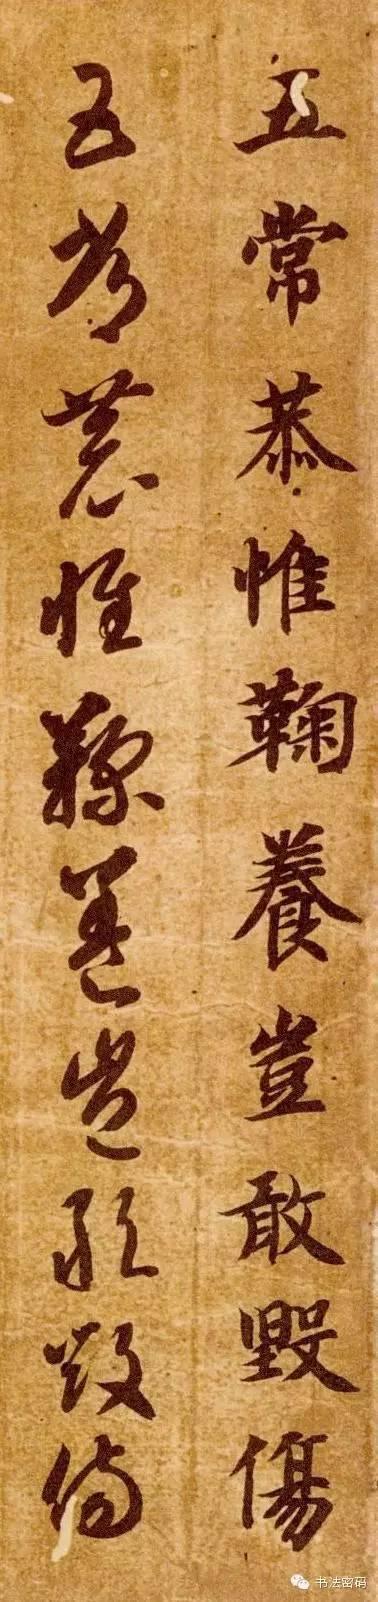 五常恭惟鞠養豈敢毀傷
五常恭惟鞠養豈敢毀傷
书法密码